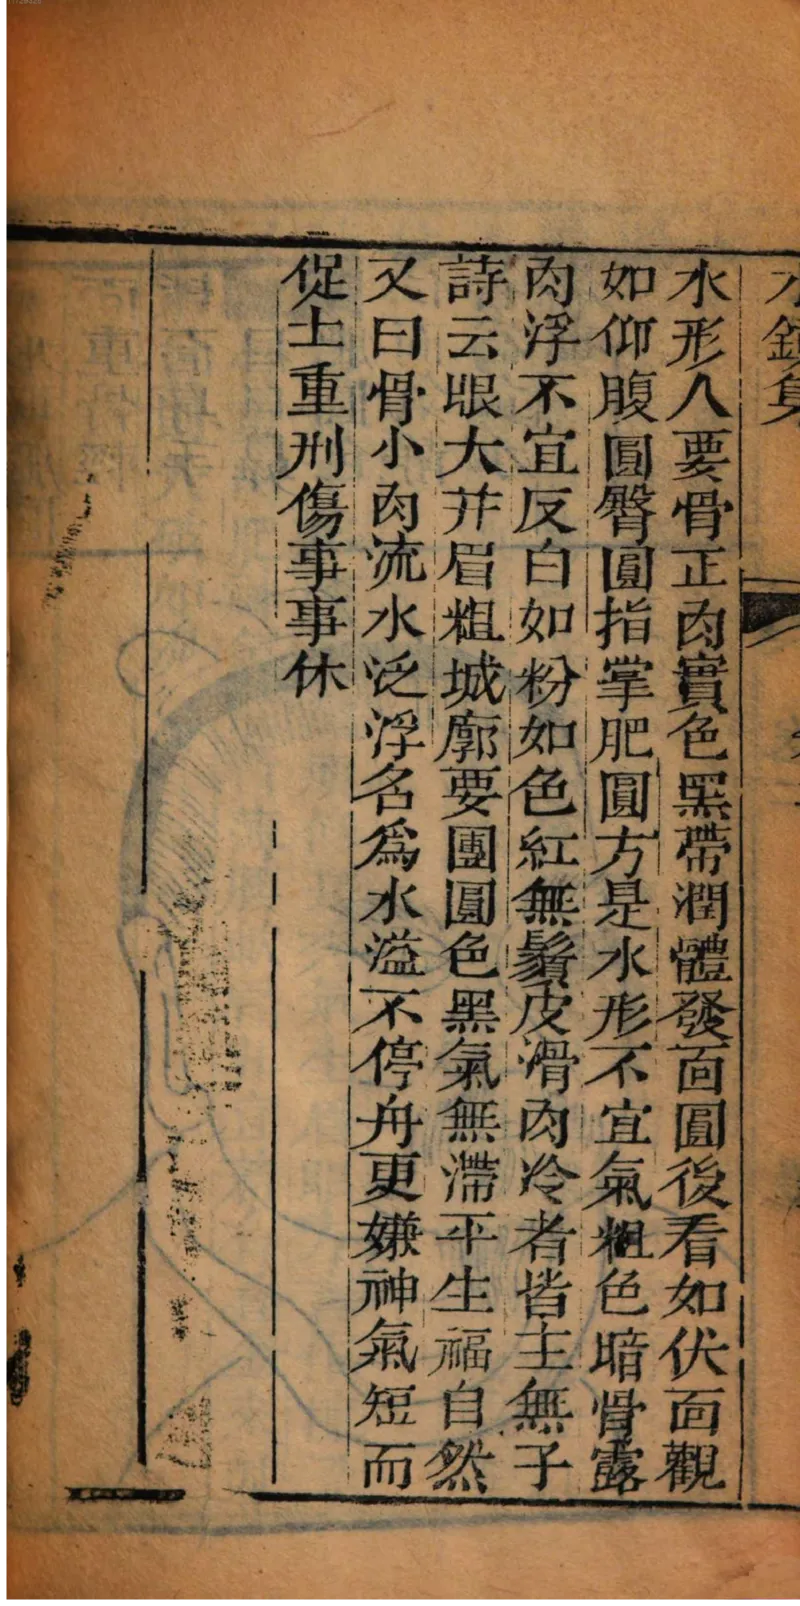 水鏡集
水形人要骨正肉實色黑帶潤體發面圓後看如伏面觀
如仰腹圓臀圓指掌肥圓方是水形不宜氣粗色暗骨露
肉浮不宜反白如粉如色紅無鬚皮滑肉冷者皆主無子
詩云眼大并眉粗城廓要團圓色黑氣無滯平生福自然
又曰骨小肉流水泛浮名爲水溢不停舟更嫌神氣短而
促土重刑傷事事休